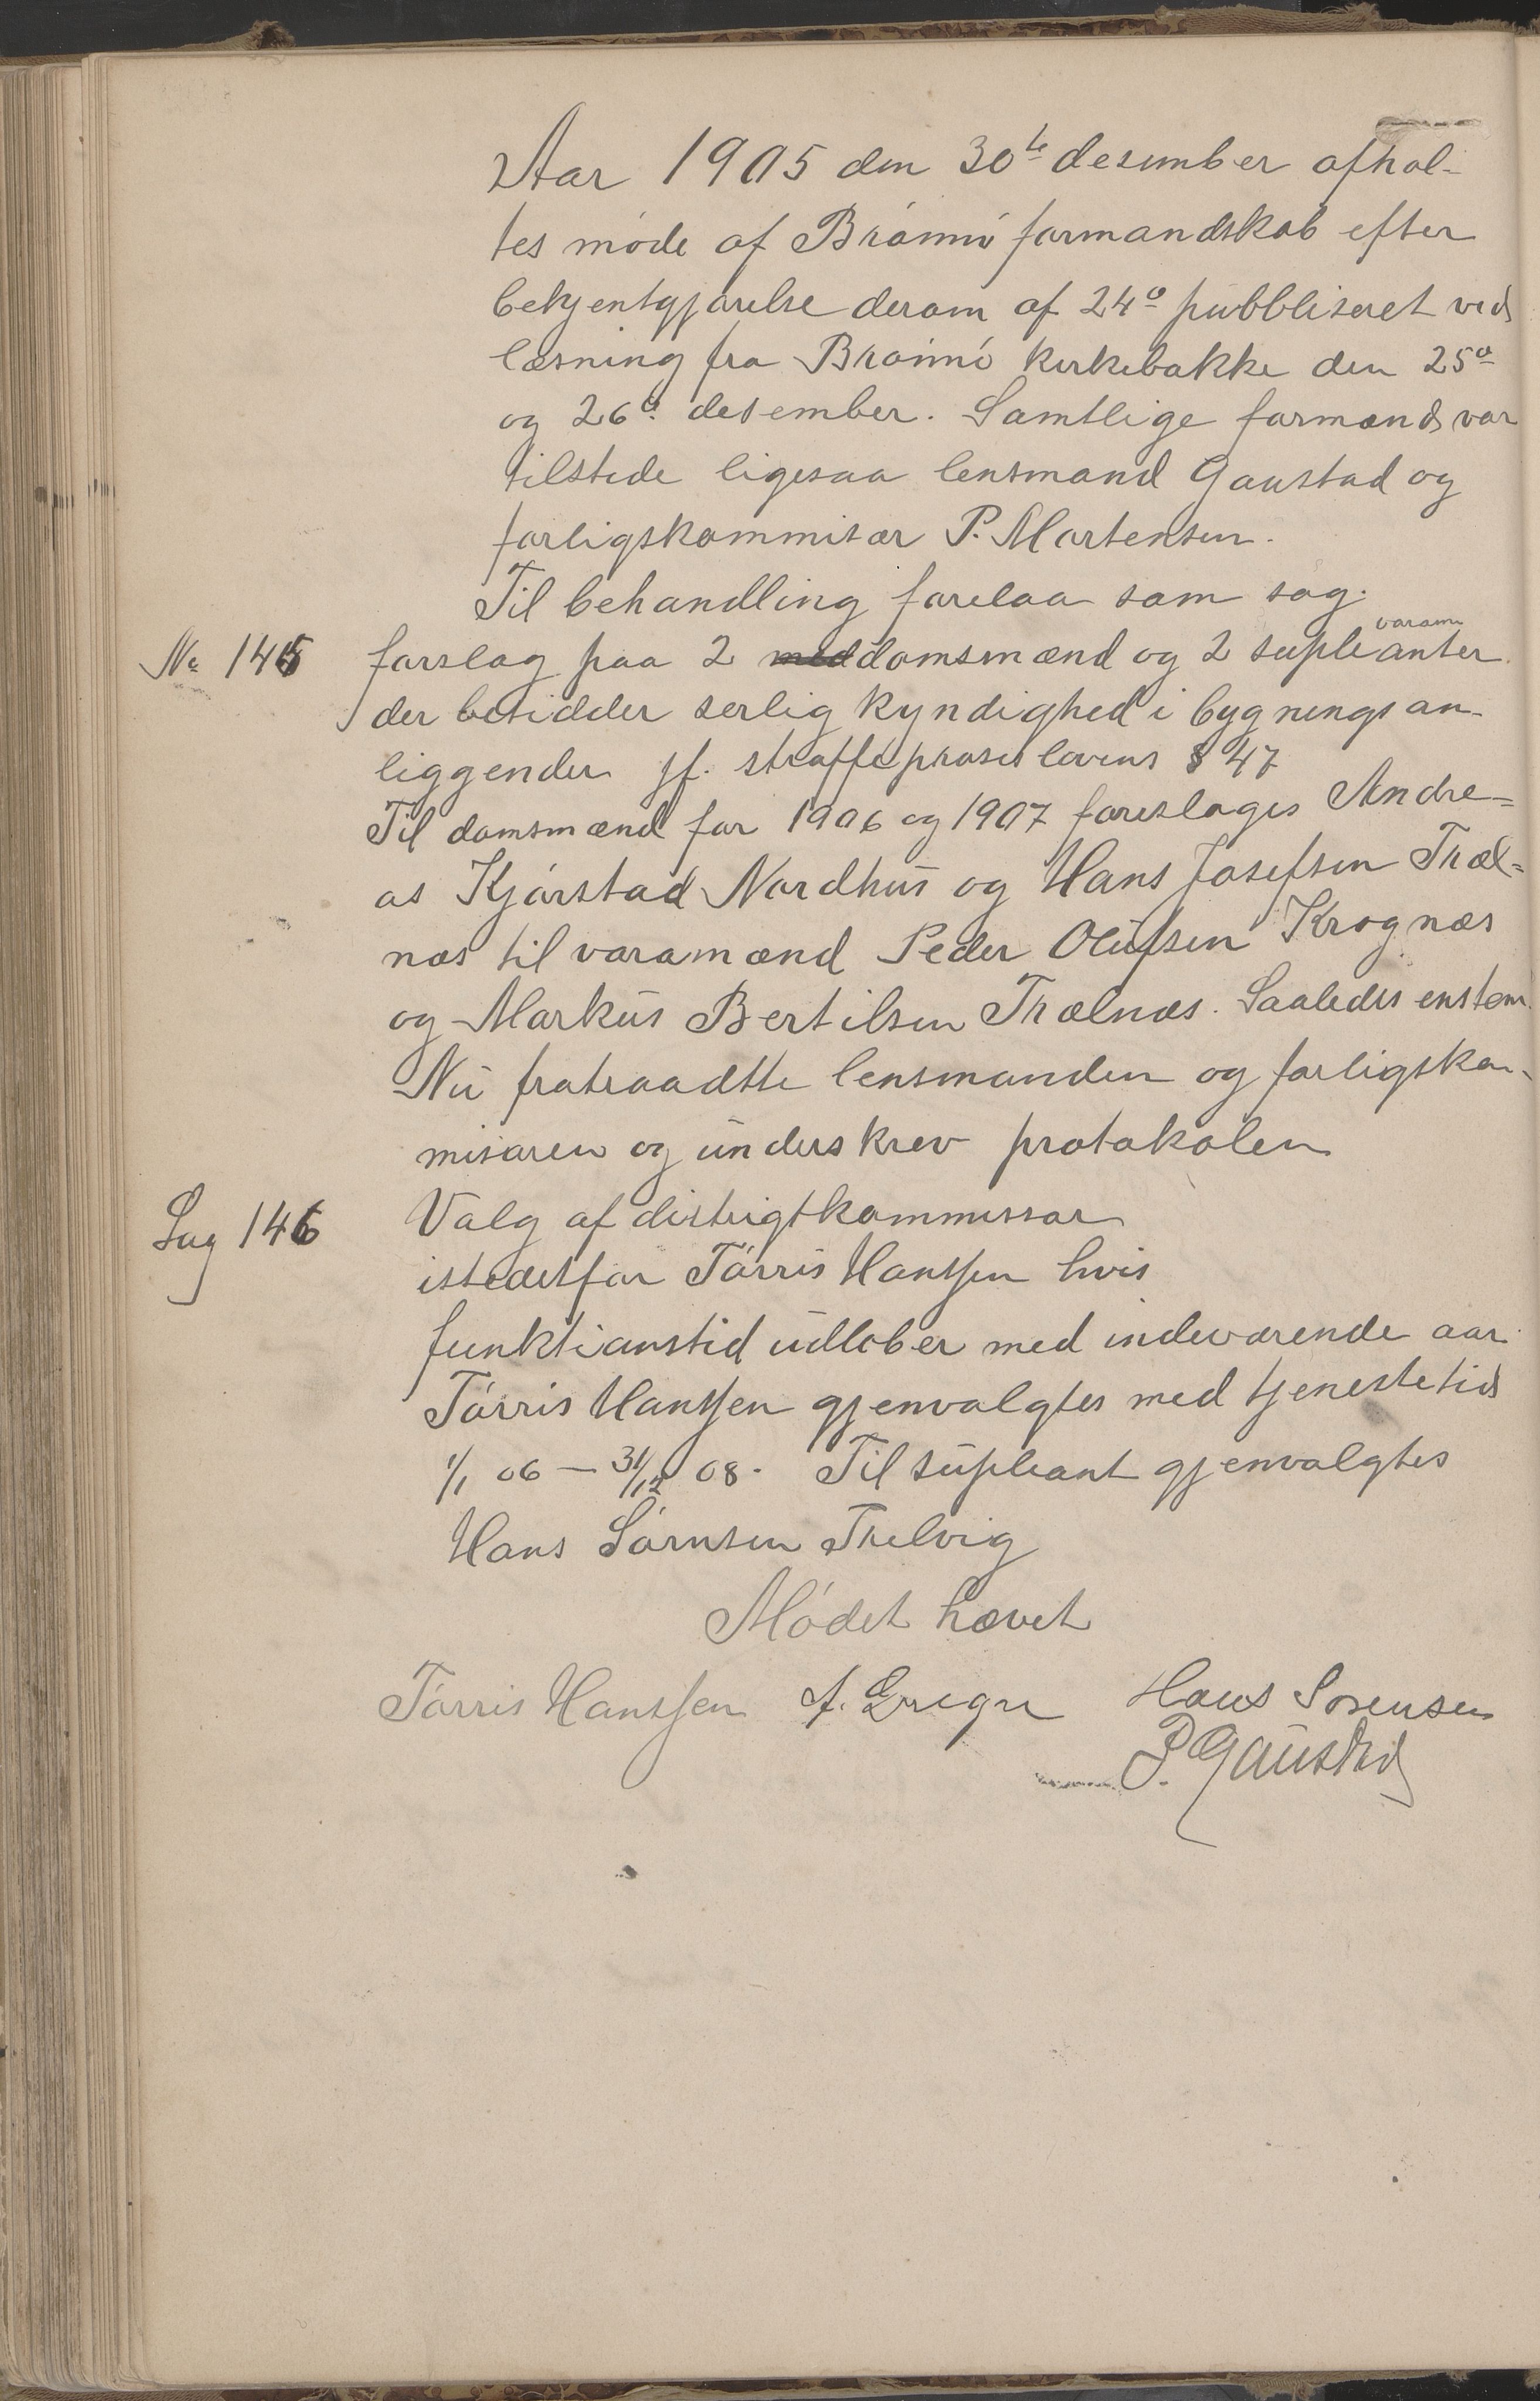 Aar 1905 den 30te desember afhol-
tes møde af Brønnø formandskab efter
bekjentgjørelse derom af 24de pubbliseret ved
læsning fra Brønnø kirkebakke den 25de
og 26de desember. Samtlige formænd var
tilstede ligesaa lensmand Gaustad og
forligskommisær P. Mortensen.
Til behandling forelaa som sag.
No 145 forslag paa 2 meddomsmænd og 2 supleanter varam
der besidder serlig kyndighed i bygningsan-
liggender jf. straffeproseslovens § 47
Til domsmænd for 1906 og 1907 foreslages Andre=
as Kjørstad Nordhus og Hans Josefsen Træl=
næs til varamænd Peder Olufsen Krognæs
og Markus Bertilsen Trælnæs. Saaledes enstem.
Nu fratraadtte lensmanden og forligskom-
misæren og underskrev protokolen
Sag 146 Valg af distrigtkommissær
istedetfor Tørris Hanssen hvis
funktionstid udløber med indeværende aar.
Tørris Hanssen gjenvalgtes med tjenestetid
1/1 06 — 31/12 08. Til supleant gjenvalgtes
Hans Sørnsen Trelvig
Mødet hævet
Tørris Hanssen Hans Sørensen
P. Gaustad